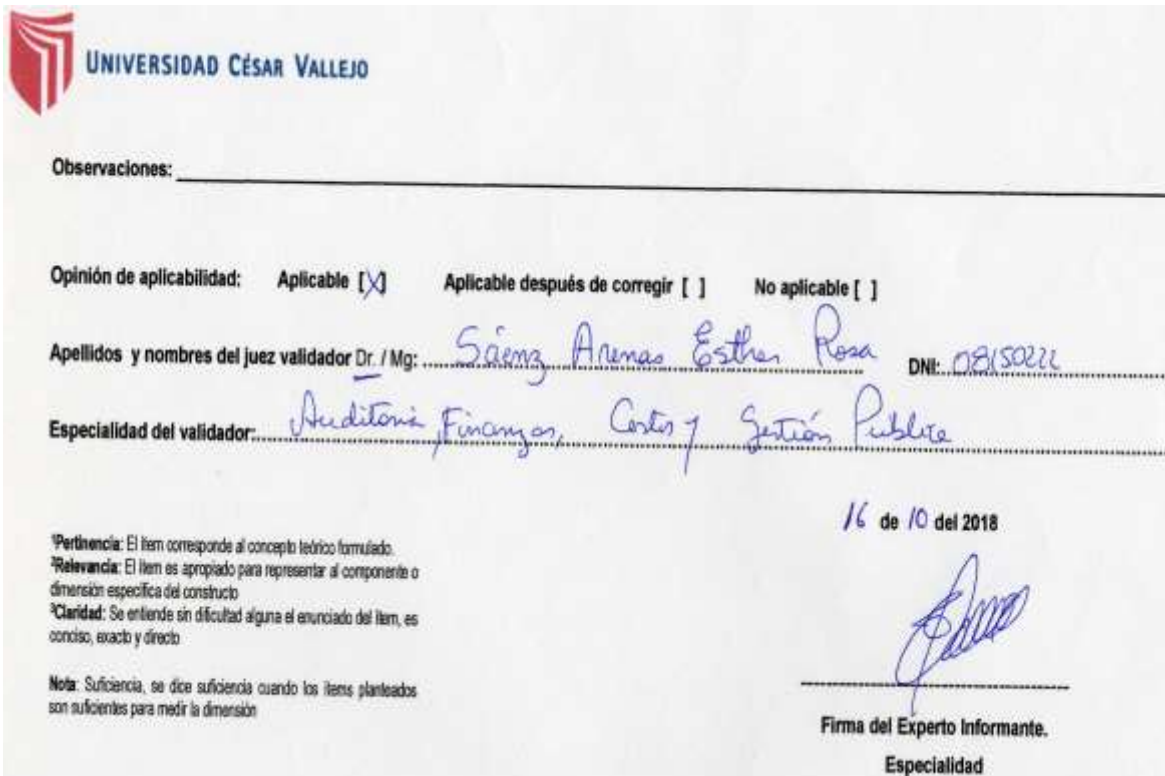 UNIVERSIDAD CÉSAR VALLEJO
Observaciones:
Opinión de aplicabilidad: Aplicable [X] Aplicable después de corregir [ ] No aplicable [ ]
Apellidos y nombres del juez validador Dr. / Mg: Sáenz Arenas Esther Rosa DNI: 08150222
Especialidad del validador: Auditoria, Finanzas, Costos y Gestión Publica
16 de 10 del 2018
¹Pertinencia: El ítem corresponde al concepto teórico formulado.
²Relevancia: El ítem es apropiado para representar al componente o
dimensión específica del constructo
³Claridad: Se entiende sin dificultad alguna el enunciado del ítem, es
conciso, exacto y directo
Nota: Suficiencia, se dice suficiencia cuando los ítems planteados
son suficientes para medir la dimensión
Firma del Experto Informante.
Especialidad